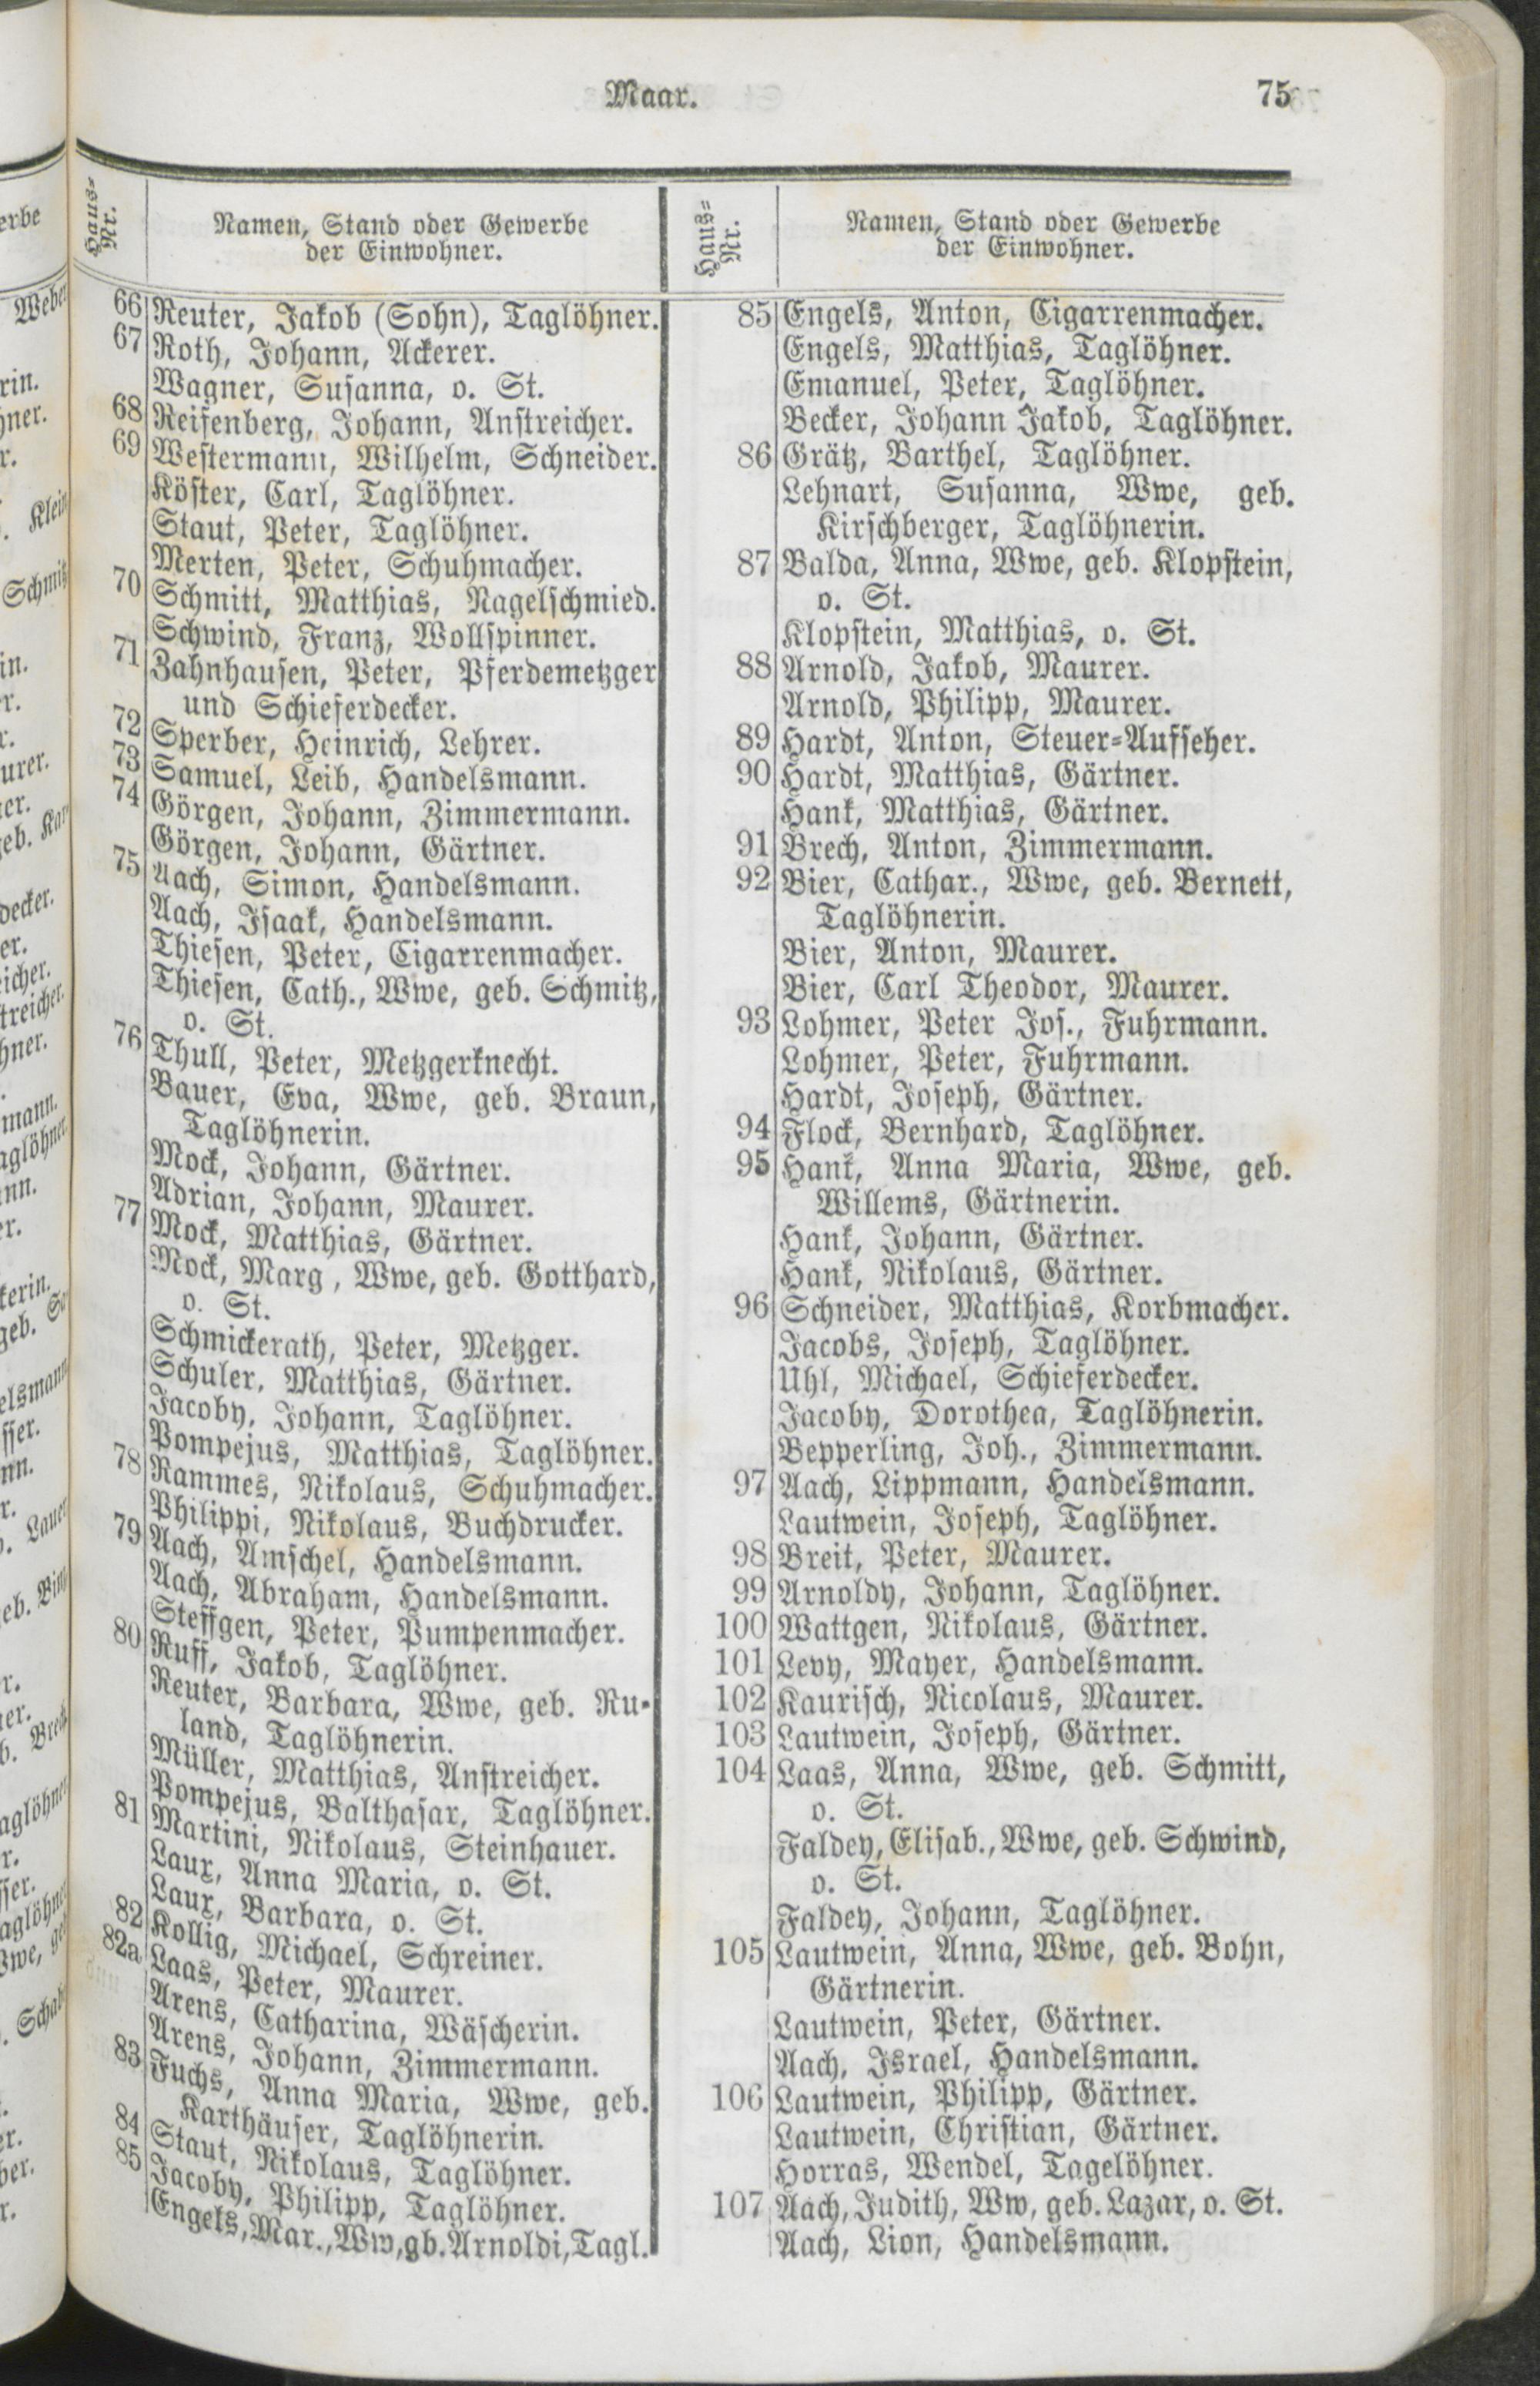 Maar.
75
Haus-Nr.
Namen, Stand oder Gewerbe
der Einwohner.
66 Reuter, Jakob (Sohn), Taglöhner.
67 Roth, Johann, Ackerer.
Wagner, Susanna, o. St.
68 Reifenberg, Johann, Anstreicher.
69 Westermann, Wilhelm, Schneider.
Köster, Carl, Taglöhner.
Staut, Peter, Taglöhner.
Merten, Peter, Schuhmacher.
70 Schmitt, Matthias, Nagelschmied.
Schwind, Franz, Wollspinner.
71 Zahnhausen, Peter, Pferdemetzger
und Schieferdecker.
72 Sperber, Heinrich, Lehrer.
73 Samuel, Leib, Handelsmann.
74 Görgen, Johann, Zimmermann.
Görgen, Johann, Gärtner.
75 Aach, Simon, Handelsmann.
Aach, Isaak, Handelsmann.
Thiesen, Peter, Cigarrenmacher.
Thiesen, Cath., Wwe, geb. Schmitz,
o. St.
76 Thull, Peter, Metzgerknecht.
Bauer, Eva, Wwe, geb. Braun,
Taglöhnerin.
Mock, Johann, Gärtner.
Adrian, Johann, Maurer.
77 Mock, Matthias, Gärtner.
Mock, Marg, Wwe, geb. Gotthard,
o. St.
Schmickerath, Peter, Metzger.
Schuler, Matthias, Gärtner.
Jacoby, Johann, Taglöhner.
Pompejus, Matthias, Taglöhner.
78 Rammes, Nikolaus, Schuhmacher.
Philippi, Nikolaus, Buchdrucker.
79 Aach, Amschel, Handelsmann.
Aach, Abraham, Handelsmann.
Steffgen, Peter, Pumpenmacher.
80 Ruff, Jakob, Taglöhner.
Reuter, Barbara, Wwe, geb. Ru-
land, Taglöhnerin.
Müller, Matthias, Anstreicher.
Pompejus, Balthasar, Taglöhner.
81 Martini, Nikolaus, Steinhauer.
Laux, Anna Maria, o. St.
Laux, Barbara, o. St.
82 Kollig, Michael, Schreiner.
82a Laas, Peter, Maurer.
Arens, Catharina, Wäscherin.
Arens, Johann, Zimmermann.
83 Fuchs, Anna Maria, Wwe, geb.
Karthäuser, Taglöhnerin.
84 Staut, Nikolaus, Taglöhner.
85 Jacoby, Philipp, Taglöhner.
Engels, Mar., Ww, gb. Arnoldi, Tagl.
Haus-Nr.
Namen, Stand oder Gewerbe
der Einwohner.
85 Engels, Anton, Cigarrenmacher.
Engels, Matthias, Taglöhner.
Emanuel, Peter, Taglöhner.
Becker, Johann Jakob, Taglöhner.
86 Grätz, Barthel, Taglöhner.
Lehnart, Susanna, Wwe, geb.
Kirschberger, Taglöhnerin.
87 Balda, Anna, Wwe, geb. Klopstein,
o. St.
Klopstein, Matthias, o. St.
88 Arnold, Jakob, Maurer.
Arnold, Philipp, Maurer.
89 Hardt, Anton, Steuer-Aufseher.
90 Hardt, Matthias, Gärtner.
Hank, Matthias, Gärtner.
91 Brech, Anton, Zimmermann.
92 Bier, Cathar., Wwe, geb. Bernett,
Taglöhnerin.
Bier, Anton, Maurer.
Bier, Carl Theodor, Maurer.
93 Lohmer, Peter Jos., Fuhrmann.
Lohmer, Peter, Fuhrmann.
Hardt, Joseph, Gärtner.
94 Flock, Bernhard, Taglöhner.
95 Hank, Anna Maria, Wwe, geb.
Willems, Gärtnerin.
Hank, Johann, Gärtner.
Hank, Nikolaus, Gärtner.
96 Schneider, Matthias, Korbmacher.
Jacobs, Joseph, Taglöhner.
Uhl, Michael, Schieferdecker.
Jacoby, Dorothea, Taglöhnerin.
Bepperling, Joh., Zimmermann.
97 Aach, Lippmann, Handelsmann.
Lautwein, Joseph, Taglöhner.
98 Breit, Peter, Maurer.
99 Arnoldy, Johann, Taglöhner.
100 Wattgen, Nikolaus, Gärtner.
101 Levy, Mayer, Handelsmann.
102 Kaurisch, Nicolaus, Maurer.
103 Lautwein, Joseph, Gärtner.
104 Laas, Anna, Wwe, geb. Schmitt,
o. St.
Faldey, Elisab., Wwe, geb. Schwind,
o. St.
Faldey, Johann, Taglöhner.
105 Lautwein, Anna, Wwe, geb. Bohn,
Gärtnerin.
Lautwein, Peter, Gärtner.
Aach, Israel, Handelsmann.
106 Lautwein, Philipp, Gärtner.
Lautwein, Christian, Gärtner.
Horras, Wendel, Tagelöhner.
107 Aach, Judith, Ww, geb. Lazar, o. St.
Aach, Lion, Handelsmann.